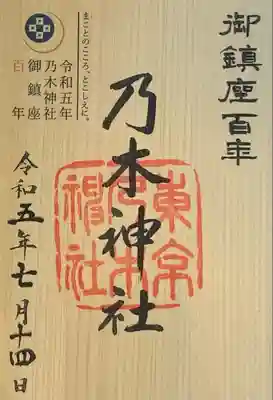 御鎮座百年
まことのこころ、とこしえに。
令和五年
乃木神社
御鎮座
百年
乃木神社
東京
乃木
神社
令和五年七月十四日